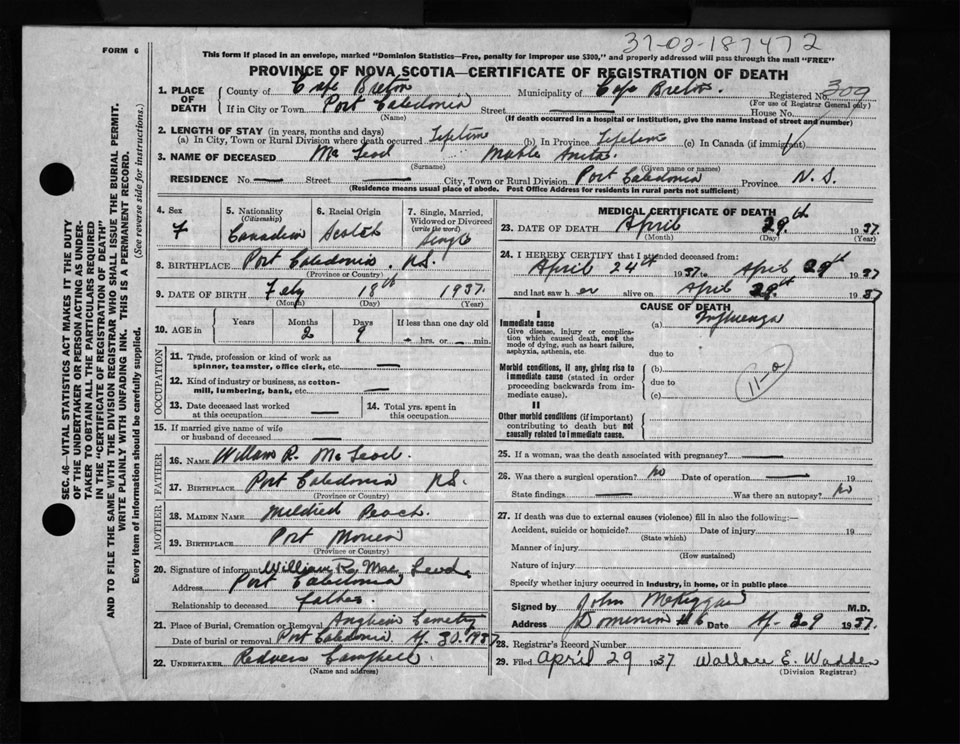 37-02-187472
FORM 6
This form if placed in an envelope, marked "Dominion Statistics—Free, penalty for improper use $300," and properly addressed will pass through the mail "FREE"
PROVINCE OF NOVA SCOTIA—CERTIFICATE OF REGISTRATION OF DEATH
1. PLACE OF DEATH
County of Cape Breton Municipality of Cape Breton. Registered No. 309
(For use of Registrar General only)
If in City or Town Port Caledonia Street — House No.
(Name) (If death occurred in a hospital or institution, give the name instead of street and number)
2. LENGTH OF STAY (in years, months and days)
(a) In City, Town or Rural Division where death occurred Lifetime (b) In Province Lifetime (c) In Canada (if immigrant)
3. NAME OF DECEASED Mc Leod Mable Anita.
(Surname) (Given name or names)
RESIDENCE No. — Street — City, Town or Rural Division Port Caledonia Province N. S.
(Residence means usual place of abode. Post Office Address for residents in rural parts not sufficient)
4. Sex F
5. Nationality (Citizenship) Canadian
6. Racial Origin Scotch
7. Single, Married, Widowed or Divorced (write the word) Single
8. BIRTHPLACE Port Caledonia. N.S.
(Province or Country)
9. DATE OF BIRTH Feby 18th 1937.
(Month) (Day) (Year)
10. AGE in Years Months 2 Days 9 If less than one day old — hrs. or — min.
OCCUPATION
11. Trade, profession or kind of work as spinner, teamster, office clerk, etc. —
12. Kind of industry or business, as cotton-mill, lumbering, bank, etc. —
13. Date deceased last worked at this occupation —
14. Total yrs. spent in this occupation
15. If married give name of wife or husband of deceased —
FATHER
16. NAME William R. Mc Leod.
17. BIRTHPLACE Port Caledonia N.S.
(Province or Country)
MOTHER
18. MAIDEN NAME Mildred Peach.
19. BIRTHPLACE Port Morien
(Province or Country)
20. Signature of informant William R. Mac Leod.
Address Port Caledonia
Relationship to deceased father.
21. Place of Burial, Cremation or Removal Cemetery
Date of burial or removal Port Caledonia. 30. 1937
22. UNDERTAKER Campbell.
(Name and address)
MEDICAL CERTIFICATE OF DEATH
23. DATE OF DEATH April 29th 1937.
(Month) (Day) (Year)
24. I HEREBY CERTIFY that I attended deceased from:
April 24th 1937 to April 29th 1937
and last saw h er alive on April 29th 1937
CAUSE OF DEATH
I
Immediate cause
Give disease, injury or complication which caused death, not the mode of dying, such as heart failure, asphyxia, asthenia, etc.
(a) Influenza
due to
Morbid conditions, if any, giving rise to immediate cause (stated in order proceeding backwards from immediate cause).
(b)
due to
(c)
II
Other morbid conditions (if important) contributing to death but not causally related to immediate cause.
25. If a woman, was the death associated with pregnancy? —
26. Was there a surgical operation? No Date of operation — 19
State findings — Was there an autopsy? No
27. If death was due to external causes (violence) fill in also the following:—
Accident, suicide or homicide? Date of injury 19
(State which)
Manner of injury
(How sustained)
Nature of injury
Specify whether injury occurred in industry, in home, or in public place
Signed by John M.D.
Address Dominion #6 Date 29 1937.
28. Registrar's Record Number
29. Filed April 29 1937 Wallace E. Wadden
(Division Registrar)
SEC. 46—VITAL STATISTICS ACT MAKES IT THE DUTY
OF THE UNDERTAKER OR PERSON ACTING AS UNDER-
TAKER TO OBTAIN ALL THE PARTICULARS REQUIRED
IN THE "CERTIFICATE OF REGISTRATION OF DEATH"
AND TO FILE THE SAME WITH THE DIVISION REGISTRAR WHO SHALL ISSUE THE BURIAL PERMIT.
WRITE PLAINLY WITH UNFADING INK. THIS IS A PERMANENT RECORD.
Every item of information should be carefully supplied. (See reverse side for instructions.)